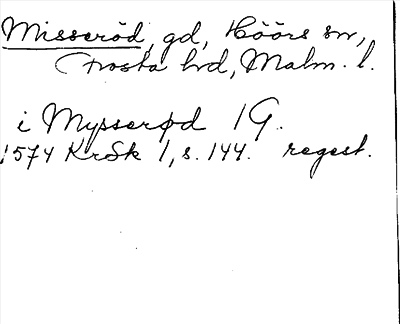 Misseröd, gd, Höörs sn,
Frosta hrd, Malm. l.
i Mysserød 1 G.
1574 KrSk 1, s. 144. regest.